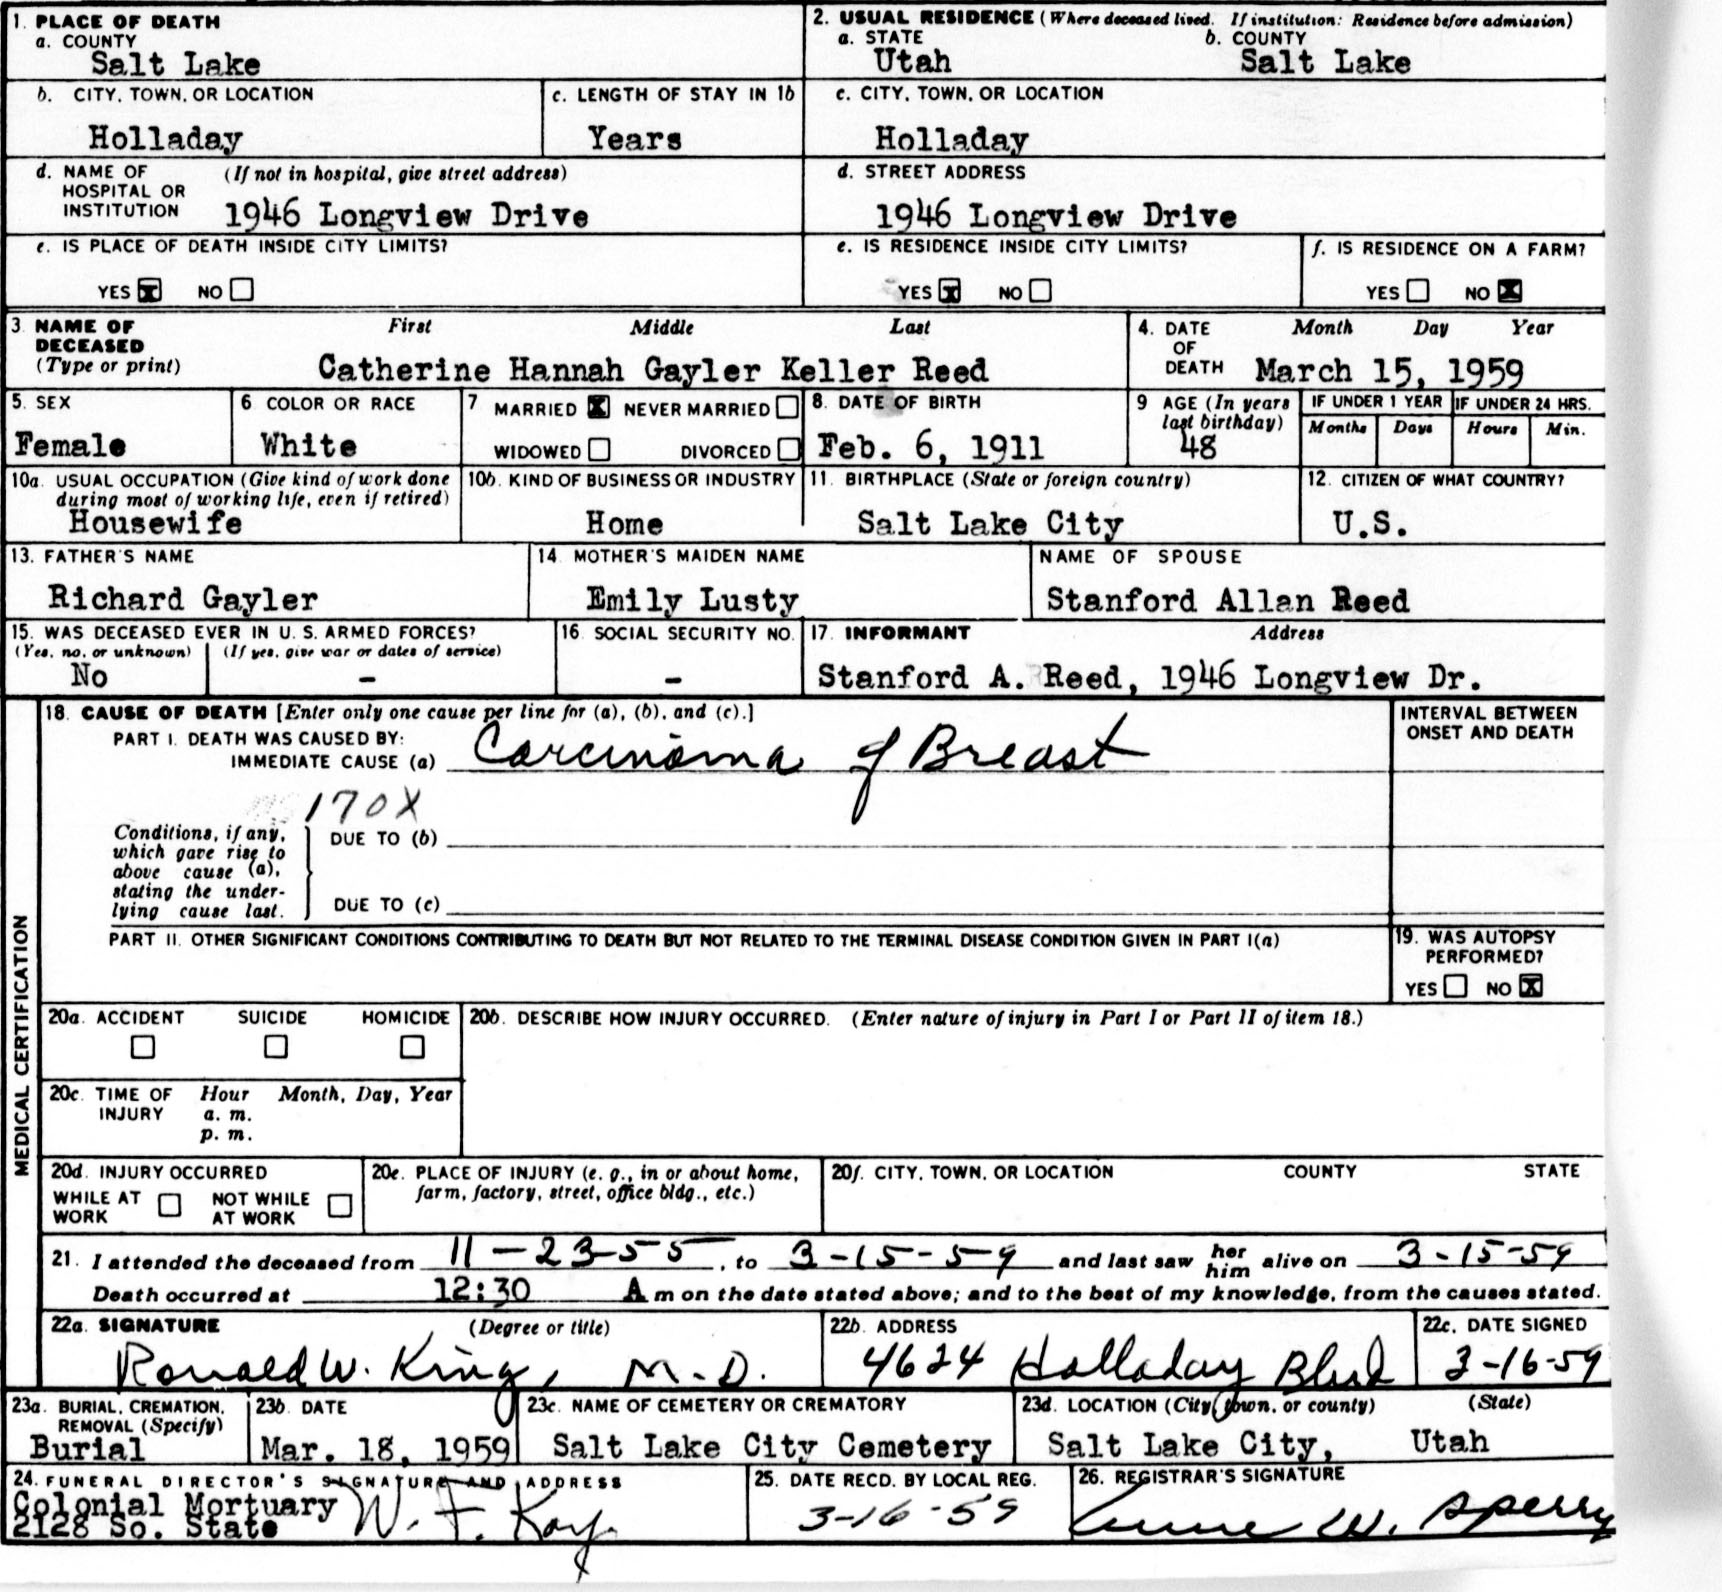 1. PLACE OF DEATH
a. COUNTY
Salt Lake
2. USUAL RESIDENCE (Where deceased lived. If institution: Residence before admission)
a. STATE b. COUNTY
Utah Salt Lake
b. CITY, TOWN, OR LOCATION
Holladay
c. LENGTH OF STAY IN 1b
Years
c. CITY, TOWN, OR LOCATION
Holladay
d. NAME OF (If not in hospital, give street address)
HOSPITAL OR
INSTITUTION 1946 Longview Drive
d. STREET ADDRESS
1946 Longview Drive
e. IS PLACE OF DEATH INSIDE CITY LIMITS?
YES X NO
e. IS RESIDENCE INSIDE CITY LIMITS?
YES X NO
f. IS RESIDENCE ON A FARM?
YES NO X
3. NAME OF First Middle Last
DECEASED
(Type or print) Catherine Hannah Gayler Keller Reed
4. DATE Month Day Year
OF
DEATH March 15, 1959
5. SEX
Female
6 COLOR OR RACE
White
7 MARRIED X NEVER MARRIED
WIDOWED DIVORCED
8. DATE OF BIRTH
Feb. 6, 1911
9 AGE (In years
last birthday)
48
IF UNDER 1 YEAR
Months Days
IF UNDER 24 HRS.
Hours Min.
10a. USUAL OCCUPATION (Give kind of work done
during most of working life, even if retired)
Housewife
10b. KIND OF BUSINESS OR INDUSTRY
Home
11. BIRTHPLACE (State or foreign country)
Salt Lake City
12. CITIZEN OF WHAT COUNTRY?
U.S.
13. FATHER'S NAME
Richard Gayler
14. MOTHER'S MAIDEN NAME
Emily Lusty
NAME OF SPOUSE
Stanford Allan Reed
15. WAS DECEASED EVER IN U. S. ARMED FORCES?
(Yes, no, or unknown) (If yes, give war or dates of service)
No -
16. SOCIAL SECURITY NO.
-
17. INFORMANT Address
Stanford A. Reed, 1946 Longview Dr.
MEDICAL CERTIFICATION
18. CAUSE OF DEATH [Enter only one cause per line for (a), (b), and (c).]
PART I. DEATH WAS CAUSED BY:
IMMEDIATE CAUSE (a) Carcinoma of Breast
INTERVAL BETWEEN
ONSET AND DEATH
170X
Conditions, if any,
which gave rise to
above cause (a),
stating the under-
lying cause last.
DUE TO (b)
DUE TO (c)
PART II. OTHER SIGNIFICANT CONDITIONS CONTRIBUTING TO DEATH BUT NOT RELATED TO THE TERMINAL DISEASE CONDITION GIVEN IN PART I(a)
19. WAS AUTOPSY
PERFORMED?
YES NO X
20a. ACCIDENT SUICIDE HOMICIDE
20b. DESCRIBE HOW INJURY OCCURRED. (Enter nature of injury in Part I or Part II of item 18.)
20c. TIME OF Hour Month, Day, Year
INJURY a. m.
p. m.
20d. INJURY OCCURRED
WHILE AT NOT WHILE
WORK AT WORK
20e. PLACE OF INJURY (e. g., in or about home,
farm, factory, street, office bldg., etc.)
20f. CITY, TOWN, OR LOCATION COUNTY STATE
21. I attended the deceased from 11-23-55, to 3-15-59 and last saw her him alive on 3-15-59
Death occurred at 12:30 A m on the date stated above; and to the best of my knowledge, from the causes stated.
22a. SIGNATURE (Degree or title)
Ronald W. King, M.D.
22b. ADDRESS
4624 Holladay Blvd
22c. DATE SIGNED
3-16-59
23a. BURIAL, CREMATION,
REMOVAL (Specify)
Burial
23b. DATE
Mar. 18, 1959
23c. NAME OF CEMETERY OR CREMATORY
Salt Lake City Cemetery
23d. LOCATION (City, town, or county) (State)
Salt Lake City, Utah
24. FUNERAL DIRECTOR'S SIGNATURE AND ADDRESS
Colonial Mortuary
2128 So. State W. F. Kay
25. DATE RECD. BY LOCAL REG.
3-16-59
26. REGISTRAR'S SIGNATURE
Anne W. Sperry